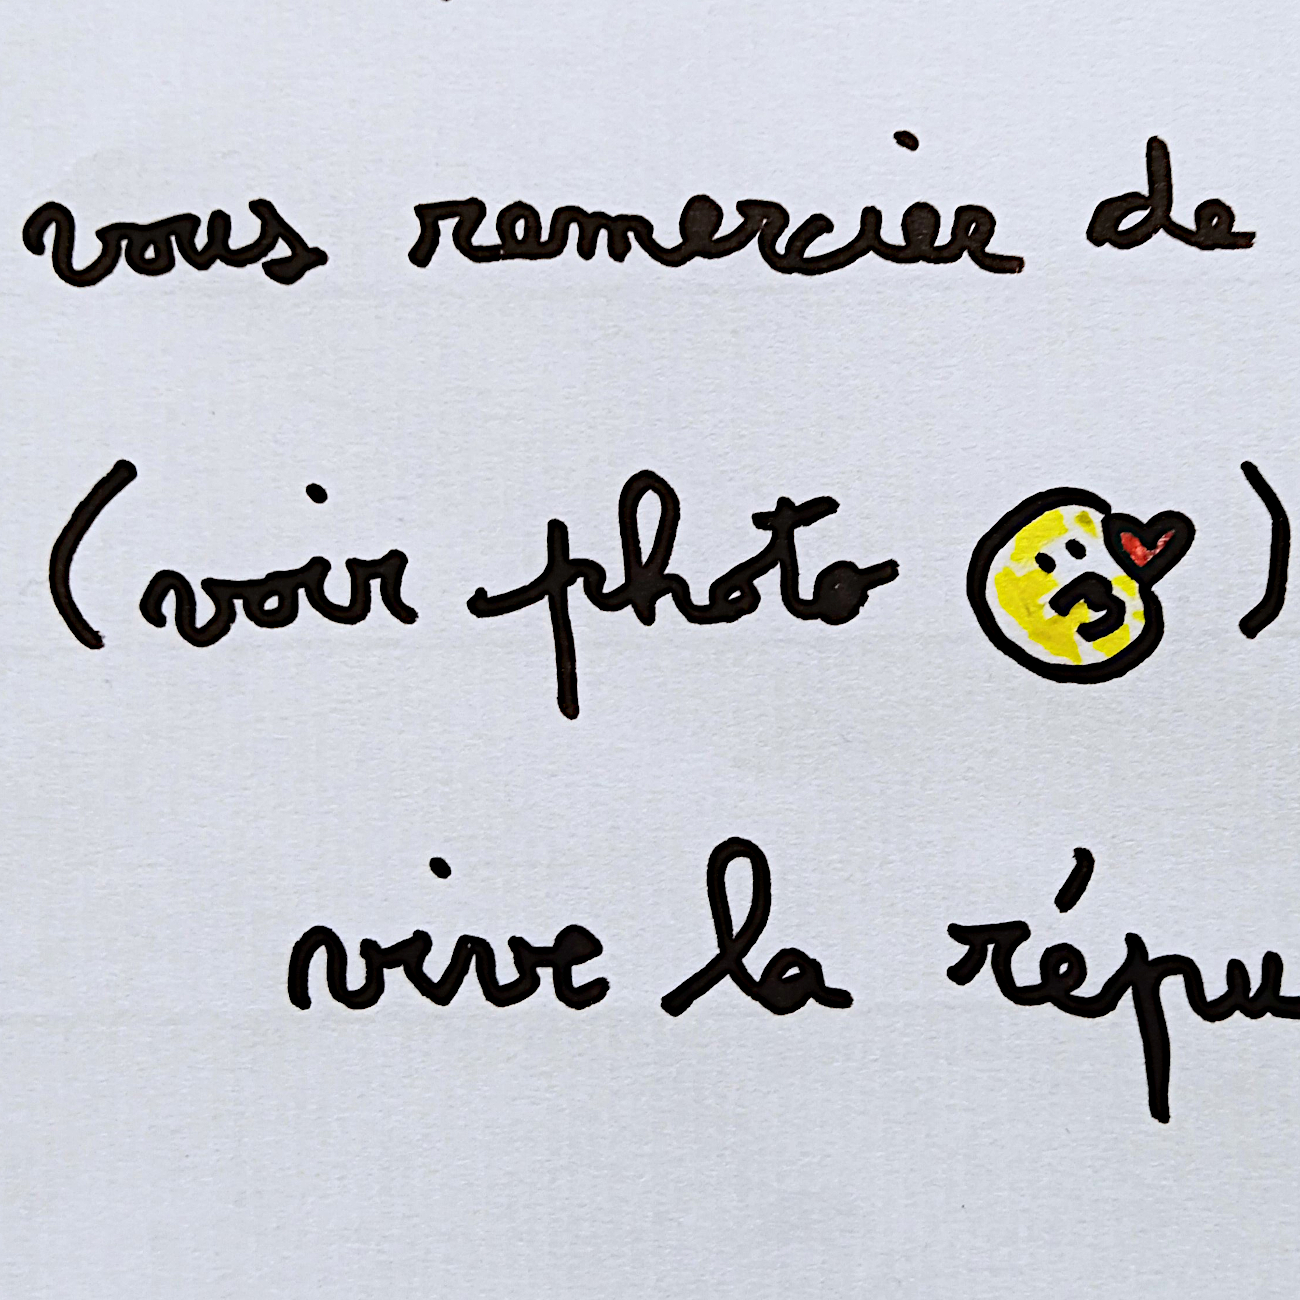 vous remercier de
(voir photo 😘)
vive la répu